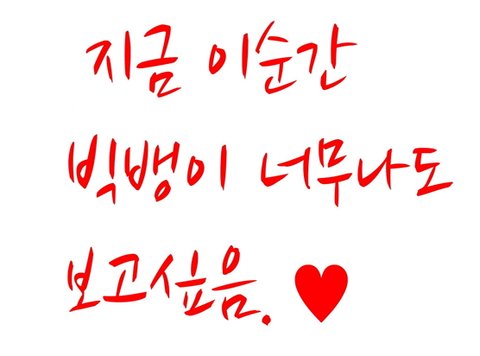 지금 이순간
빅뱅이 너무나도
보고싶음. ♥